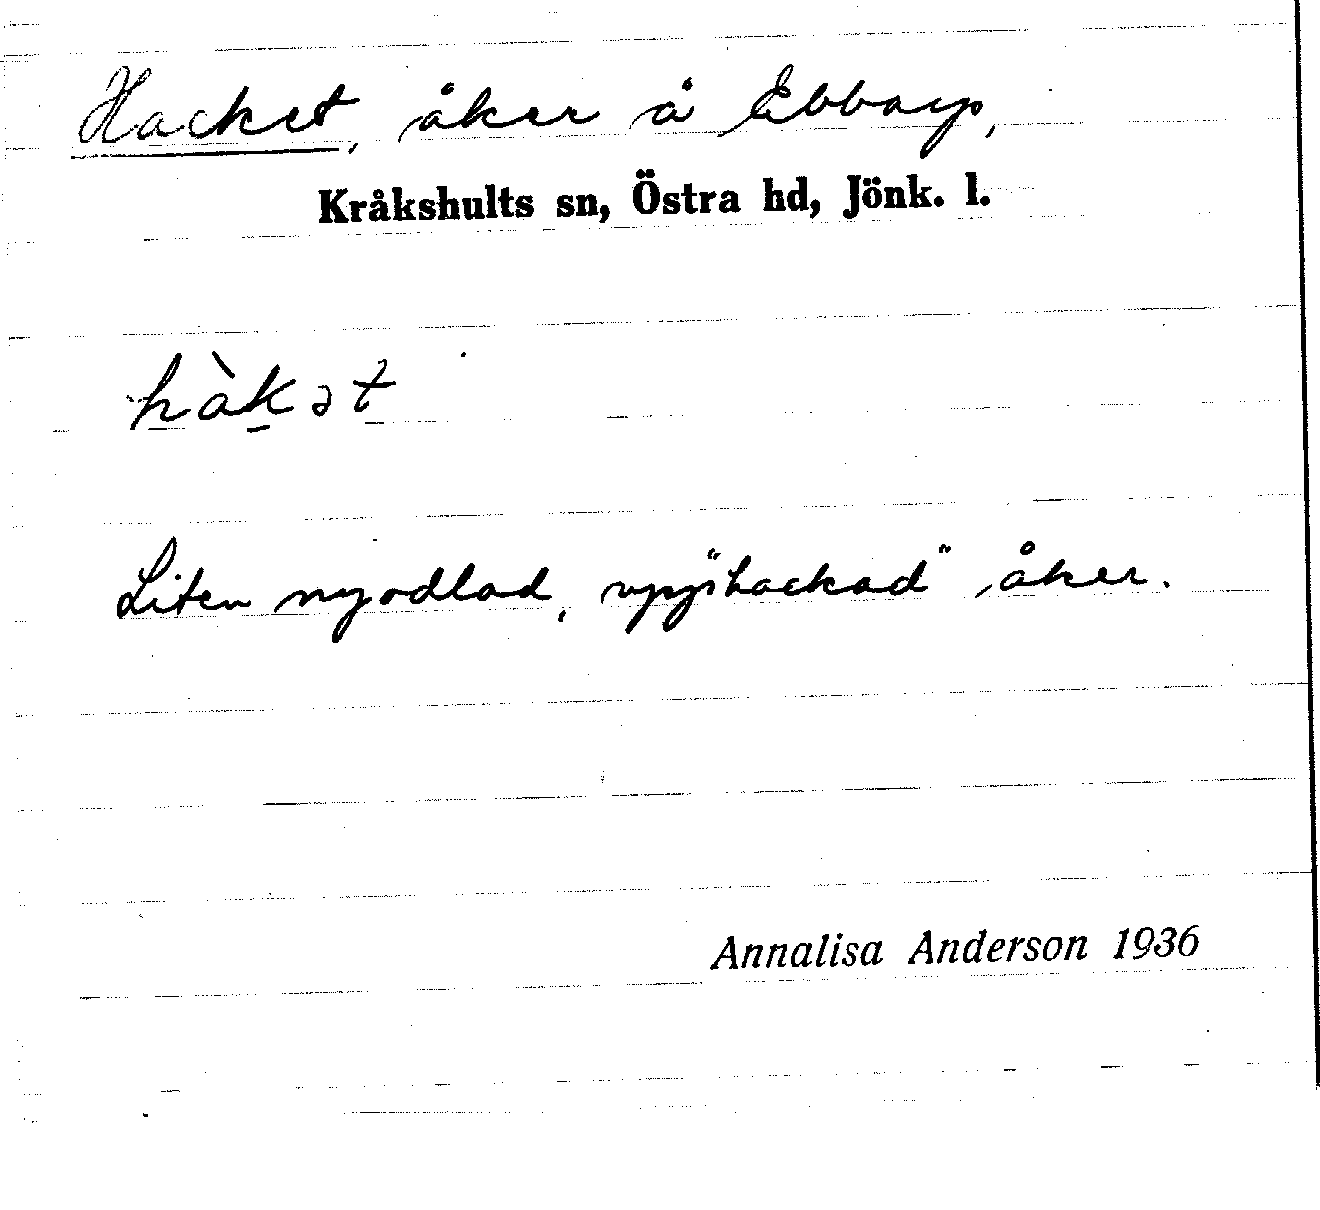 Hacket, åker å Ebbarp,
Kråkshults sn, Östra hd, Jönk. l.
hàk̠ət
Liten nyodlad, upp"hackad" åker.
Annalisa Anderson 1936